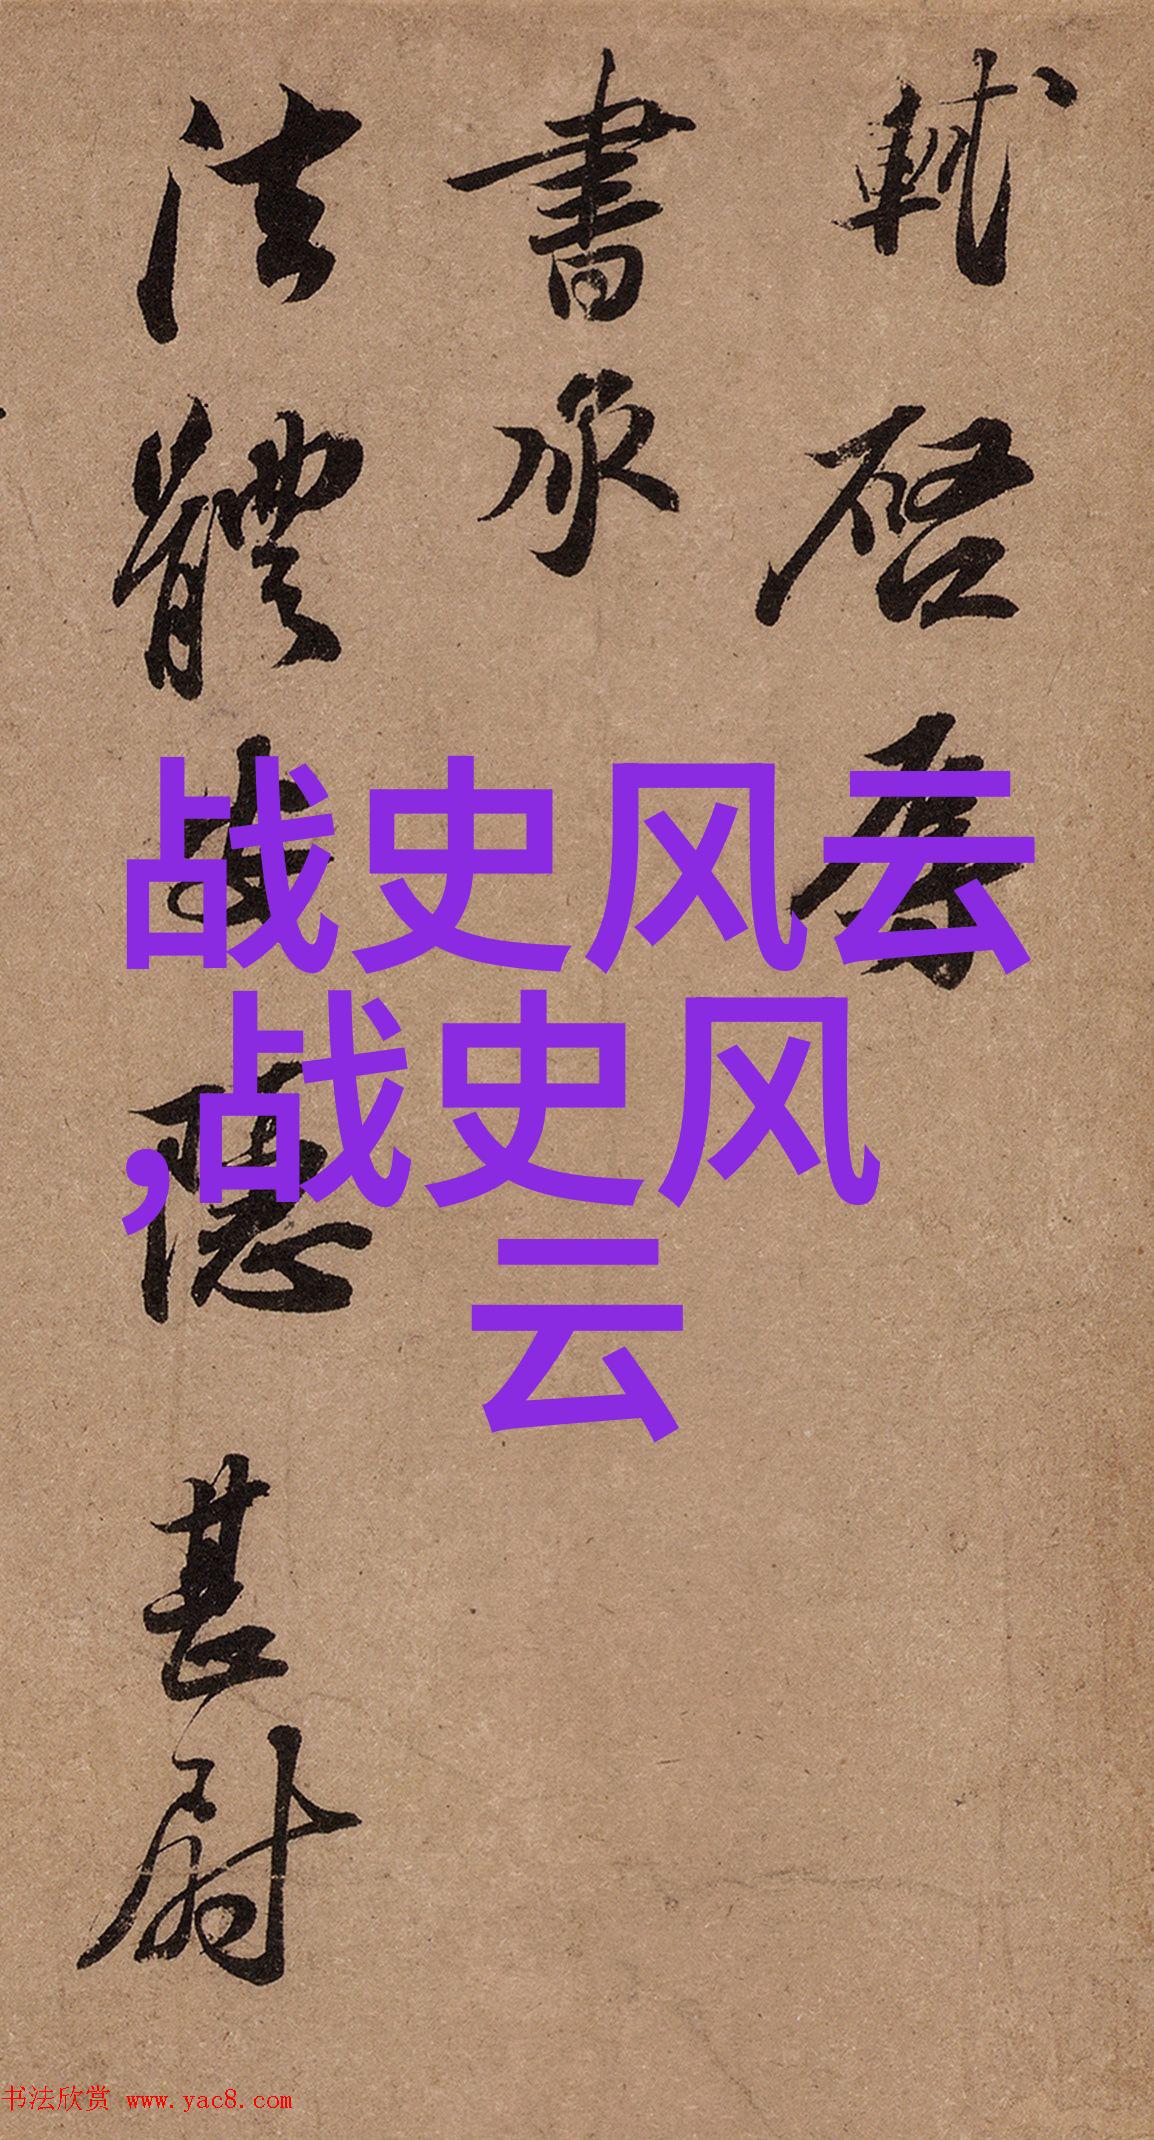 軾啓辱
書承
法體
隱甚尉
战史风云
,战史风
云
书法欣赏 www.yac8.com